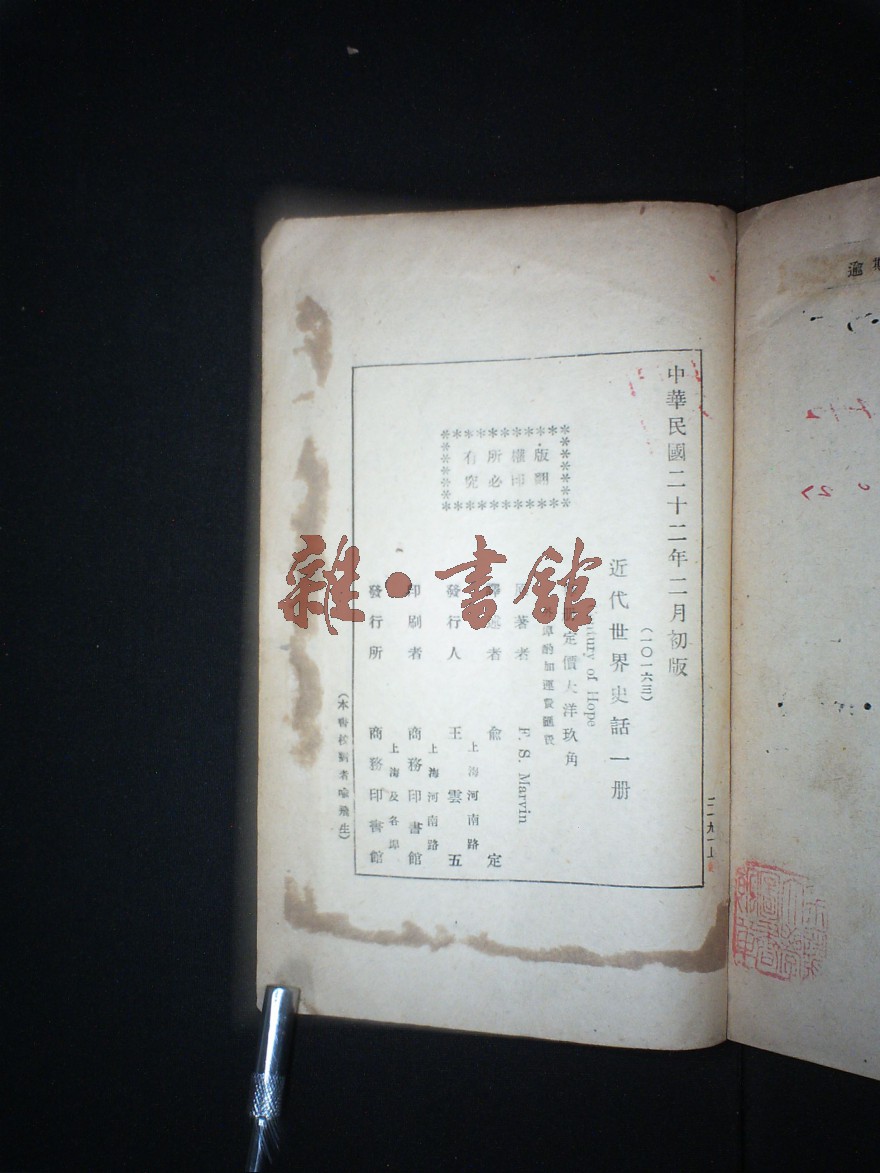 中華民國二十二年二月初版
(一〇一六三)
近代世界史話一册
of Hope
定價大洋玖角
外埠酌加運費匯費
版權所有
翻印必究
著者 F. S. Marvin
者 俞 定
發行人 王雲五
上海河南路
印刷者 商務印書館
上海河南路
發行所 商務印書館
上海及各埠
(本書校對者喻飛生)
雜•書館
逾